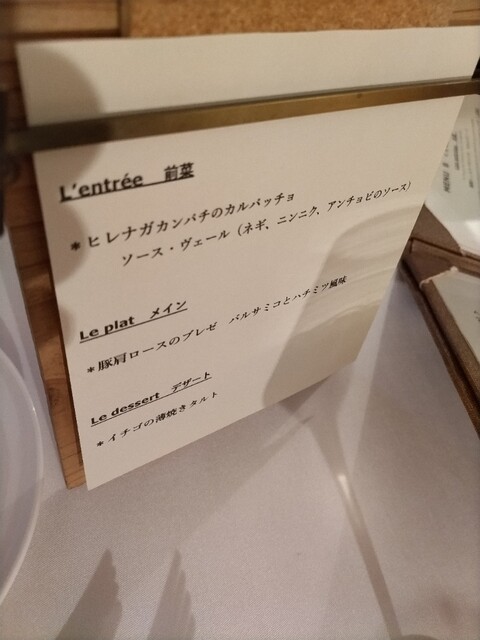 L'entrée 前菜
*ヒレナガカンパチのカルパッチョ
ソース・ヴェール（ネギ、ニンニク、アンチョビのソース）
Le plat メイン
*豚肩ロースのブレゼ バルサミコとハチミツ風味
Le dessert デザート
*イチゴの薄焼きタルト
MENU